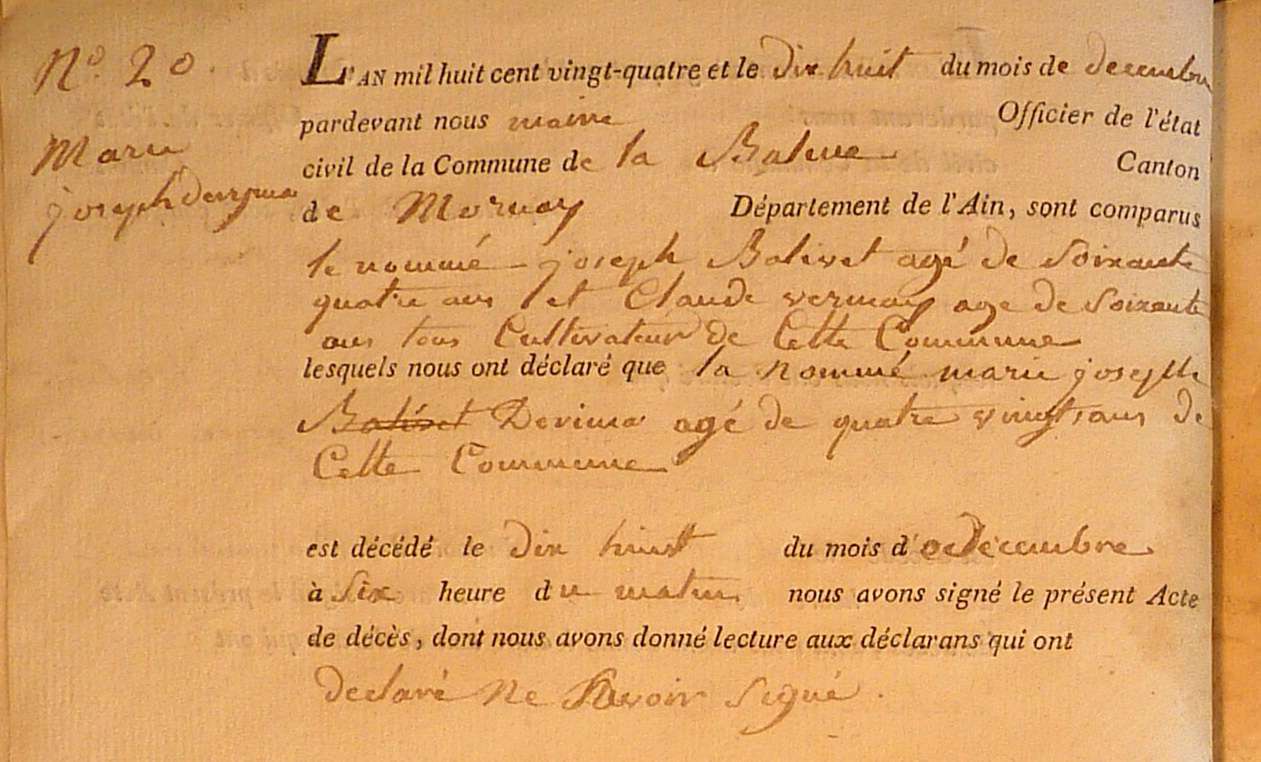 N.º 20.
Marie
joseph
L'AN mil huit cent vingt-quatre et le dix huit du mois de decembre
pardevant nous maire Officier de l'état
civil de la Commune de la Balme Canton
de Mornay Département de l'Ain, sont comparus
le nommé joseph Balivet agé de Soixante
quatre ans et Claude vernay age de Soixante
ans tous Cultivateur de Cette Commune
lesquels nous ont déclaré que la nommé marie joseph
Balivet Devima agé de quatre vingt ans de
Cette Commune
est décédé le dix huit du mois d decembre
à Six heure du matin nous avons signé le présent Acte
de décès, dont nous avons donné lecture aux déclarans qui ont
declaré ne Savoir Signé.